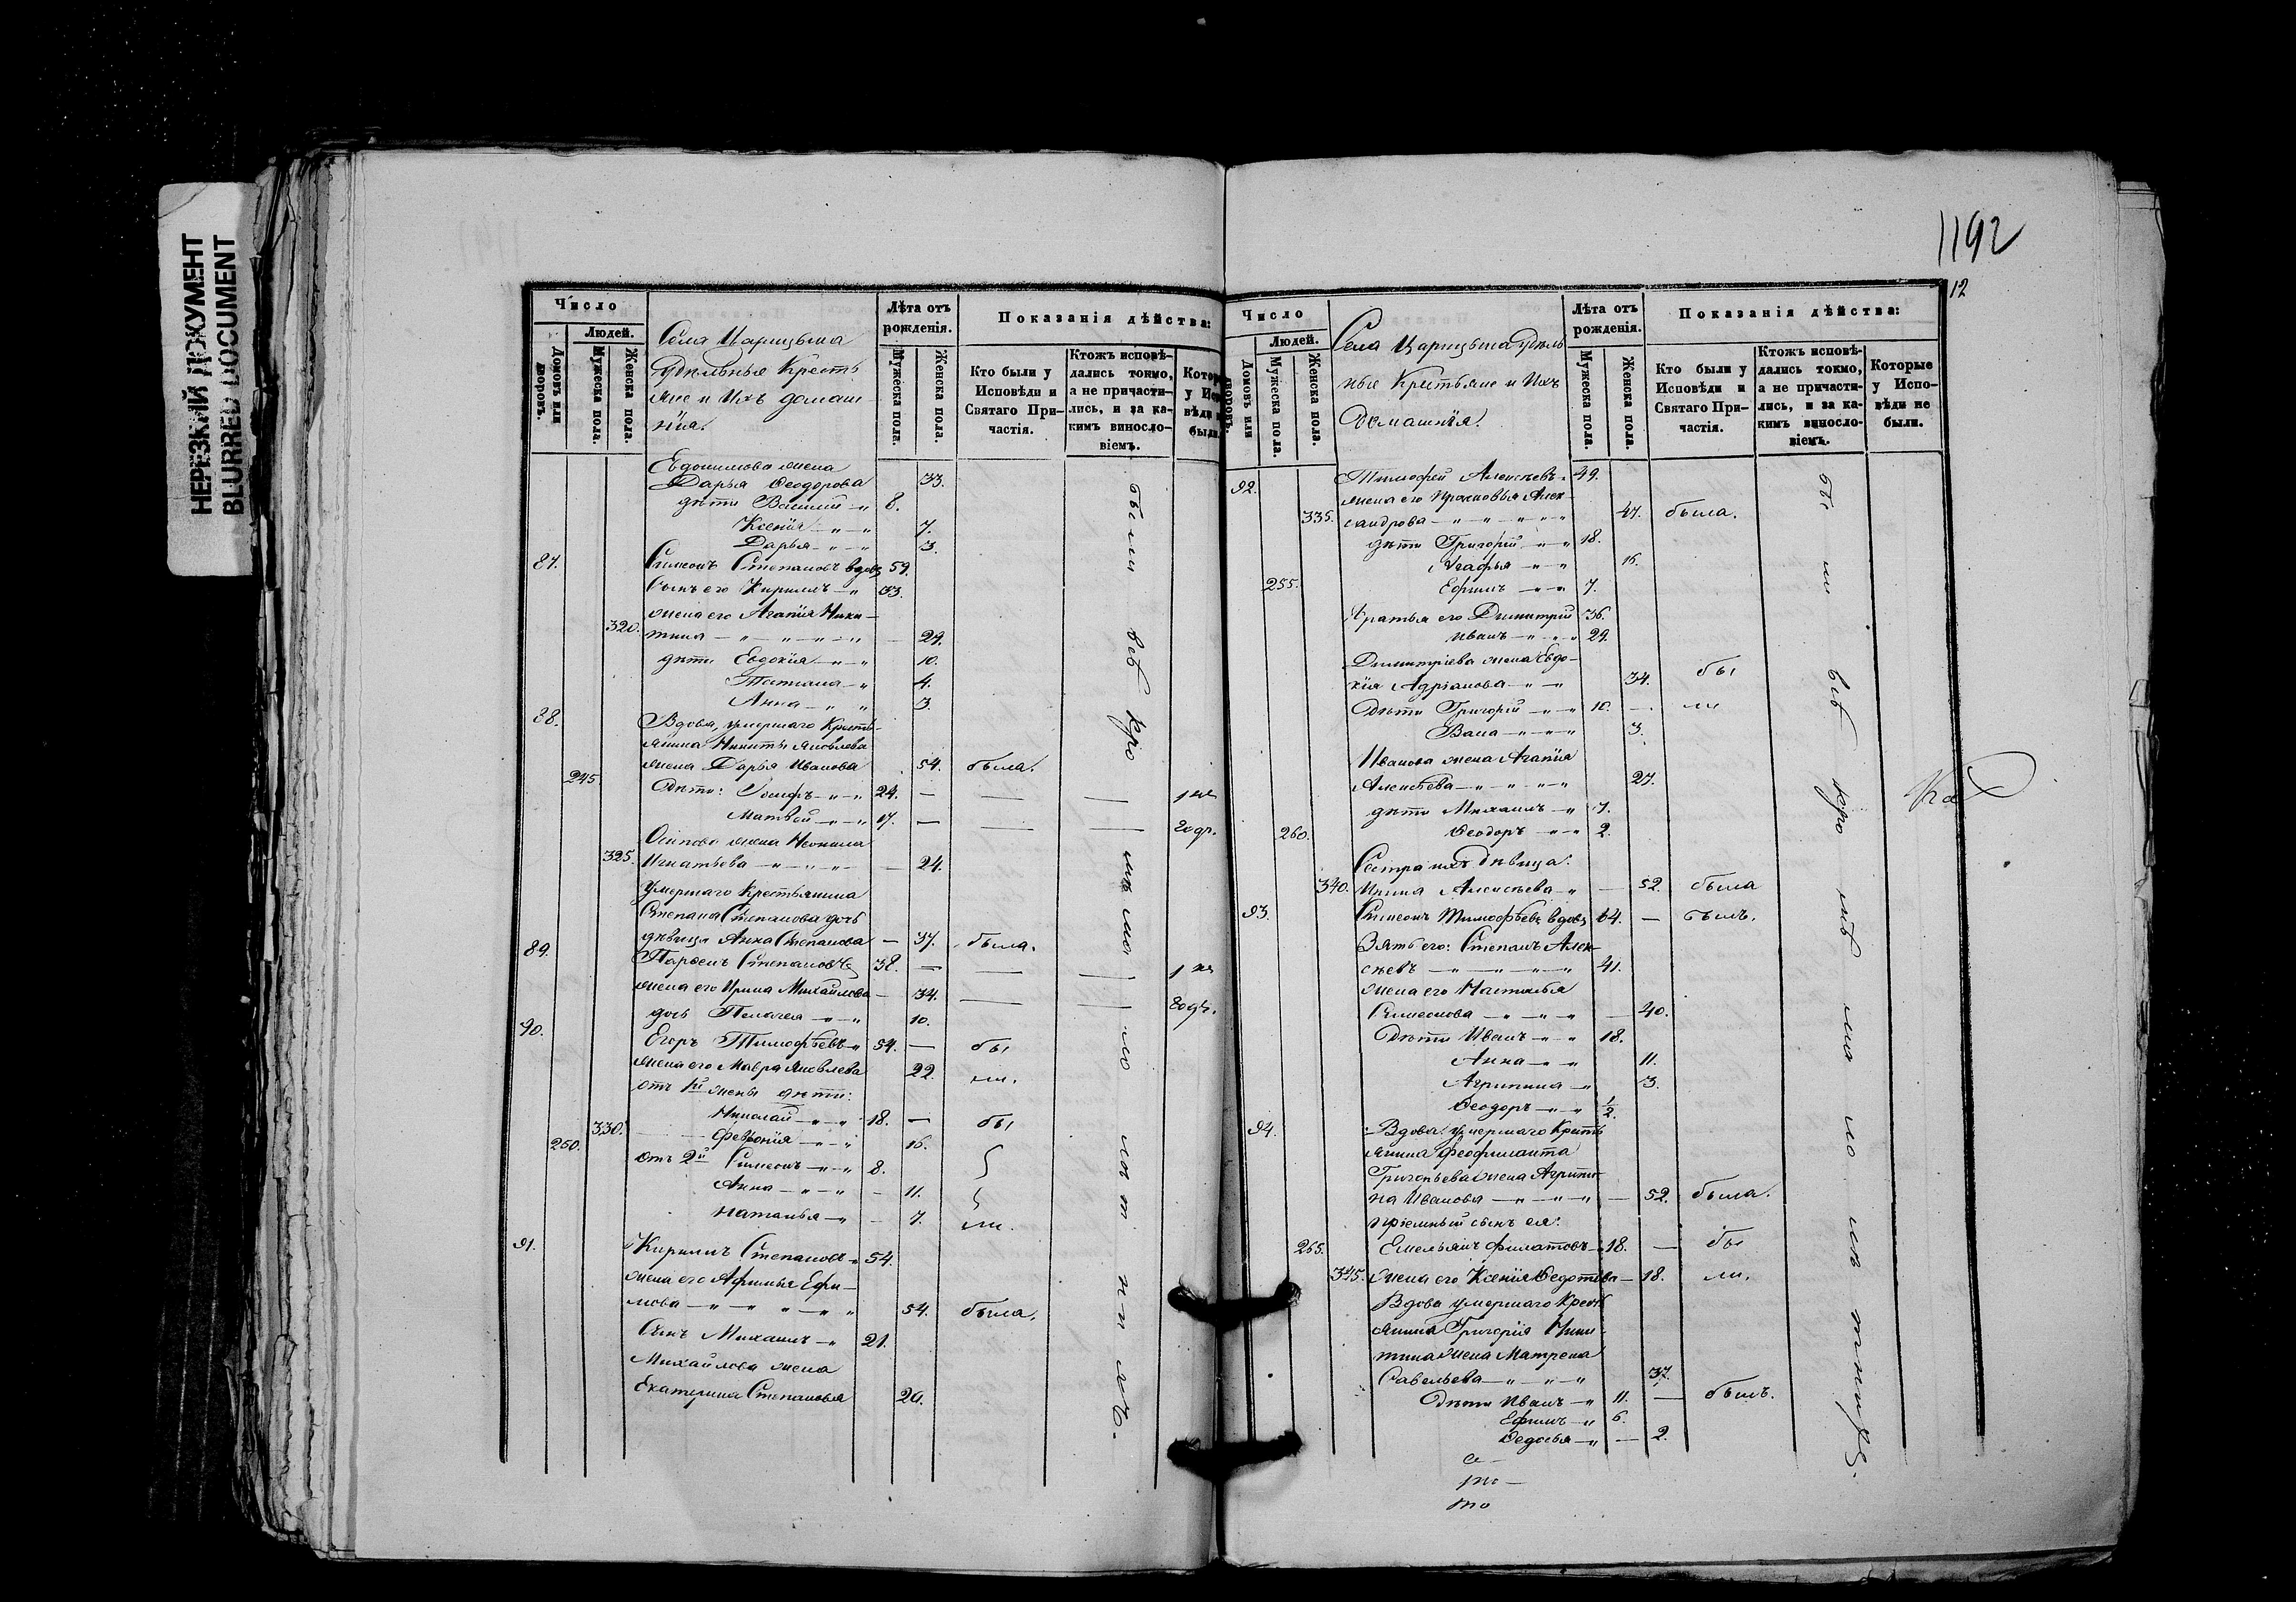 НЕРЕЗКИЙ ДОКУМЕНТ
BLURRED DOCUMENT
Число
Людей.
Домовъ или дворовъ.
Мужеска пола.
Женска пола.
Села Царицына
удѣльныя Кресть
яне и Ихъ домаш
нія.
Лѣта отъ рожденія.
Мужеска пола.
Женска пола.
Показанія дѣйства:
Кто были у Исповѣди и Святаго При-
частія.
Ктожъ исповѣ-
дались токмо,
а не причасти-
лись, и за ка-
кимъ виносло-
віемъ.
Которые
у Испо-
вѣди не
были.
Евдокимова жена
Дарья Ѳеодорова 33.
дѣти Василій 8.
Ксенія 7.
Дарья 3.
87. Симеонъ Степановъ вдовъ 59.
Сынъ его Кирилъ 33.
жена его Агапія Ники-
320. тина 29.
дѣти Евдокія 10.
Татіана 4.
Анна 3.
88. Вдова, умершаго Кресть-
янина Никиты Яковлева
жена Дарья Иванова 54. была.
245. Дѣти: Іосифъ 24. — — — 1й
Матвей 17. — — — 2 др.
Осипова жена Неонила
325. Игнатьева — 24.
Умершаго Крестьянина
Степана Степанова дочь
дѣвица Анна Степанова — 37. была.
89. Парѳенъ Степановъ 38. — — — 1
жена его Ирина Михайлова — 34. — —
дочь Пелагея 10.
90. Егоръ Тимофѣевъ 54. — бы
жена его Мавра Яковлева 22. ли.
отъ 1й жены дѣти:
Николай 18. — бы
330. Февронія 16.
250. отъ 2й Симеонъ 8.
Анна — 11.
Наталья — 7. ли.
91. Кирилъ Степановъ 54.
жена его Афимья Ефи-
мова 54. была.
Сынъ Михаилъ 21.
Михайлова жена
Екатерина Степанова 20.
были всѣ кро мѣ мо ло лѣт ни хъ.
1192
12
Число
Людей.
Домовъ или дворовъ.
Мужеска пола.
Женска пола.
Села Царицына удѣль
ные Крестьяне и Ихъ
Домашнія.
Лѣта отъ рожденія.
Мужеска пола.
Женска пола.
Показанія дѣйства:
Кто были у Исповѣди и Святаго При-
частія.
Ктожъ исповѣ-
дались токмо,
а не причасти-
лись, и за ка-
кимъ виносло-
віемъ.
Которые
у Испо-
вѣди не
были.
92. Тимофей Алексѣевъ 49.
жена его Прасковья Алек-
335. сандрова 47. была.
дѣти Григорій 18.
Агафья 16.
255. Ефимъ 7.
Братья его Димитрій 36.
Иванъ 29.
Димитріева жена Евдо-
кія Адріанова 34. бы
Дѣти Григорій 10. — ли
Васа 3.
Иванова жена Агапія
Алексѣева 27.
дѣти Михаилъ 7.
260. Ѳеодоръ 2.
Сестра ихъ дѣвица:
340. Ирина Алексѣева — 52. была
93. Симеонъ Тимофѣевъ вдовъ 64. — былъ.
Зять его: Степанъ Алек-
сѣевъ 41.
жена его Наталья
Симеонова — 40.
Дѣти Иванъ 18.
Анна 11.
Агрипина 3.
Ѳеодоръ 1/2.
94. Вдова: умершаго Кресть
янина Феофилакта
Григорьева жена Агрипи-
на Иванова — 52. была.
пріемный сынъ ея:
265. Емельянъ Филатовъ 18. — бы
345. жена его Ксенія Ѳедотова — 18. ли.
Вдова умершаго Кресть
янина Григорія Ники-
тина жена Матрена
Савельева 37.
Дѣти Иванъ 11. — былъ.
Ефимъ 6.
Ѳедосья — 2.